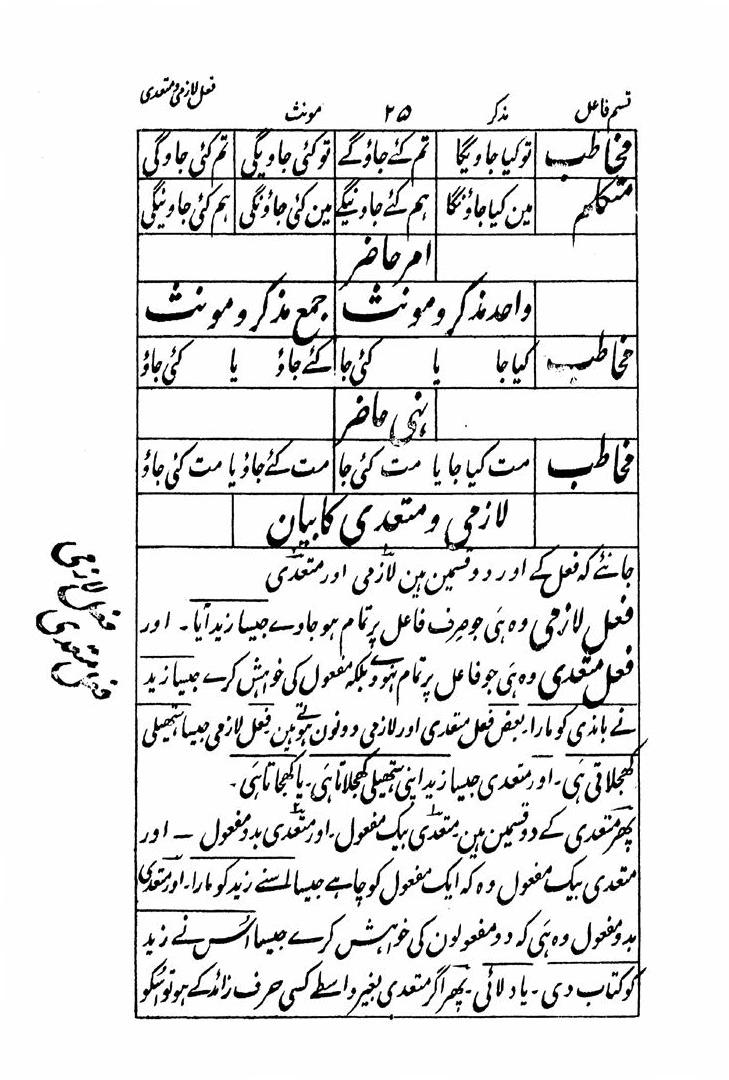 قسم فاعل مذکر ۲۵ مونث فعل لازمی و متعدی
مخاطب توکیا جاویگا تم کئے جاؤگے توکئی جاویگی تم کئی جاوگی
متکلم مین کیا جاؤنگا ہم کئے جاوینگے مین کئی جاؤنگی ہم کئی جاوینگی
امر حاضر
واحد مذکر و مونث جمع مذکر و مونث
مخاطب کیا جا یا کئی جا کئے جاؤ یا کئی جاؤ
نہی حاضر
مخاطب مت کیا جا یا مت کئی جا مت کئے جاؤ یا مت کئی جاؤ
لازمی و متعدی کا بیان
جانئے کہ فعل کے اور دو قسمین ہین لازمی اور متعدی
فعل لازمی وہ ہی جو صرف فاعل پر تمام ہو جاوے جیسا زید آیا۔ اور
فعل متعدی وہ ہی جو فاعل پر تمام نہووے بلکہ مفعول کی خواہش کرے جیسا زید
نے باندی کو مارا۔ بعض فعل متعدی اور لازمی دونون ہوتے ہین فعل لازمی جیسا ہتھیلی
کھجلاتی ہی۔ اور متعدی جیسا زید اپنی ہتھیلی کھجلاتا ہی۔ یا کھجاتا ہی۔
پھر متعدی کے دو قسمین ہین متعدی بیک مفعول۔ اور متعدی بدو مفعول ۔ اور
متعدی بیک مفعول وہ کہ ایک مفعول کو چاہے جیسا اسنے زید کو مارا۔ اور متعدی
بدو مفعول وہ ہی کہ دو مفعولون کی خواہش کرے جیسا اُس نے زید
کو کتاب دی۔ یا دلائی۔ پھر اگر متعدی بغیر واسطے کسی حرف زائد کے ہو تو اُسکو
فعل لازمی
فعل متعدی